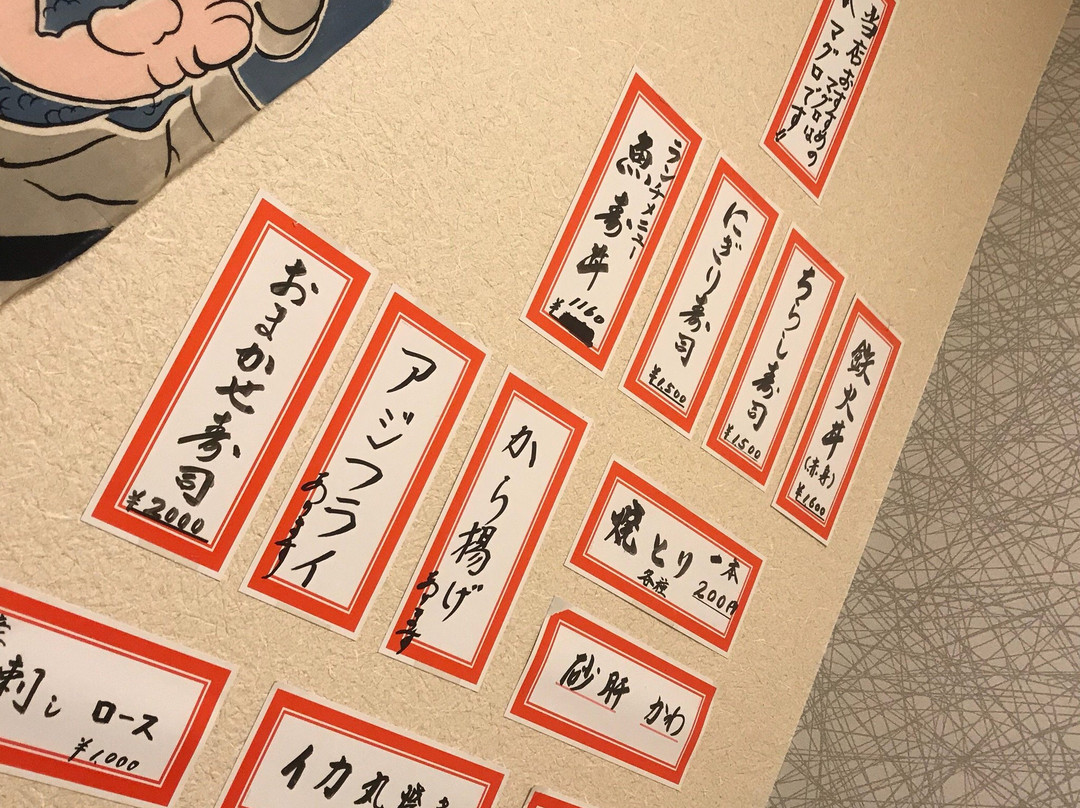 当店おすすめの
マグロは
マグロです!!
ランチメニュー
魚寿丼
¥1160
にぎり寿司
¥1,500
ちらし寿司
¥1500
鉄火丼
(赤身)
¥1600
おまかせ寿司
¥2000
アジフライ
あります
から揚げ
あります
焼とり 一本
各種 200円
砂肝 かわ
刺し ロース
¥1,000
イカ丸焼